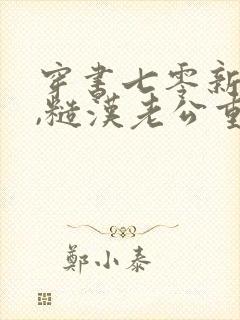 穿書七零新
,糙漢老公重
鄭小泰